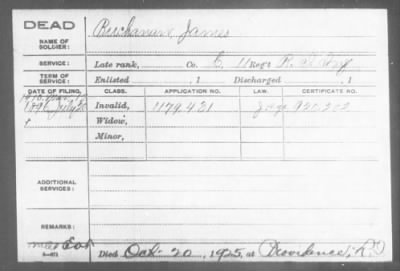 DEAD
NAME OF SOLDIER:
Buchanan James
SERVICE: Late rank, Co. C 11 Reg't R.I. Inf
TERM OF SERVICE: Enlisted , 1 Discharged , 1
DATE OF FILING. CLASS. APPLICATION NO. LAW. CERTIFICATE NO.
1896 July Invalid, 1179.431 920.202
Widow,
Minor,
ADDITIONAL SERVICES:
REMARKS:
Died Oct 20, 1925, at Providence, R.I